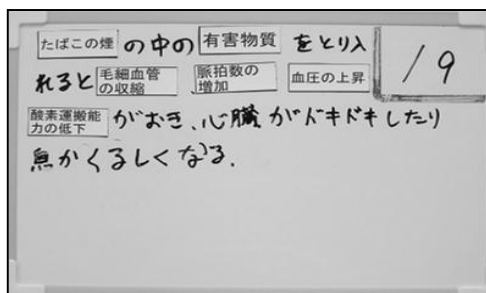 たばこの煙 の中の 有害物質 をとり入
れると 毛細血管の収縮 脈拍数の増加 血圧の上昇
酸素運搬能力の低下 がおき、心臓がドキドキしたり
息がくるしくなる.
19